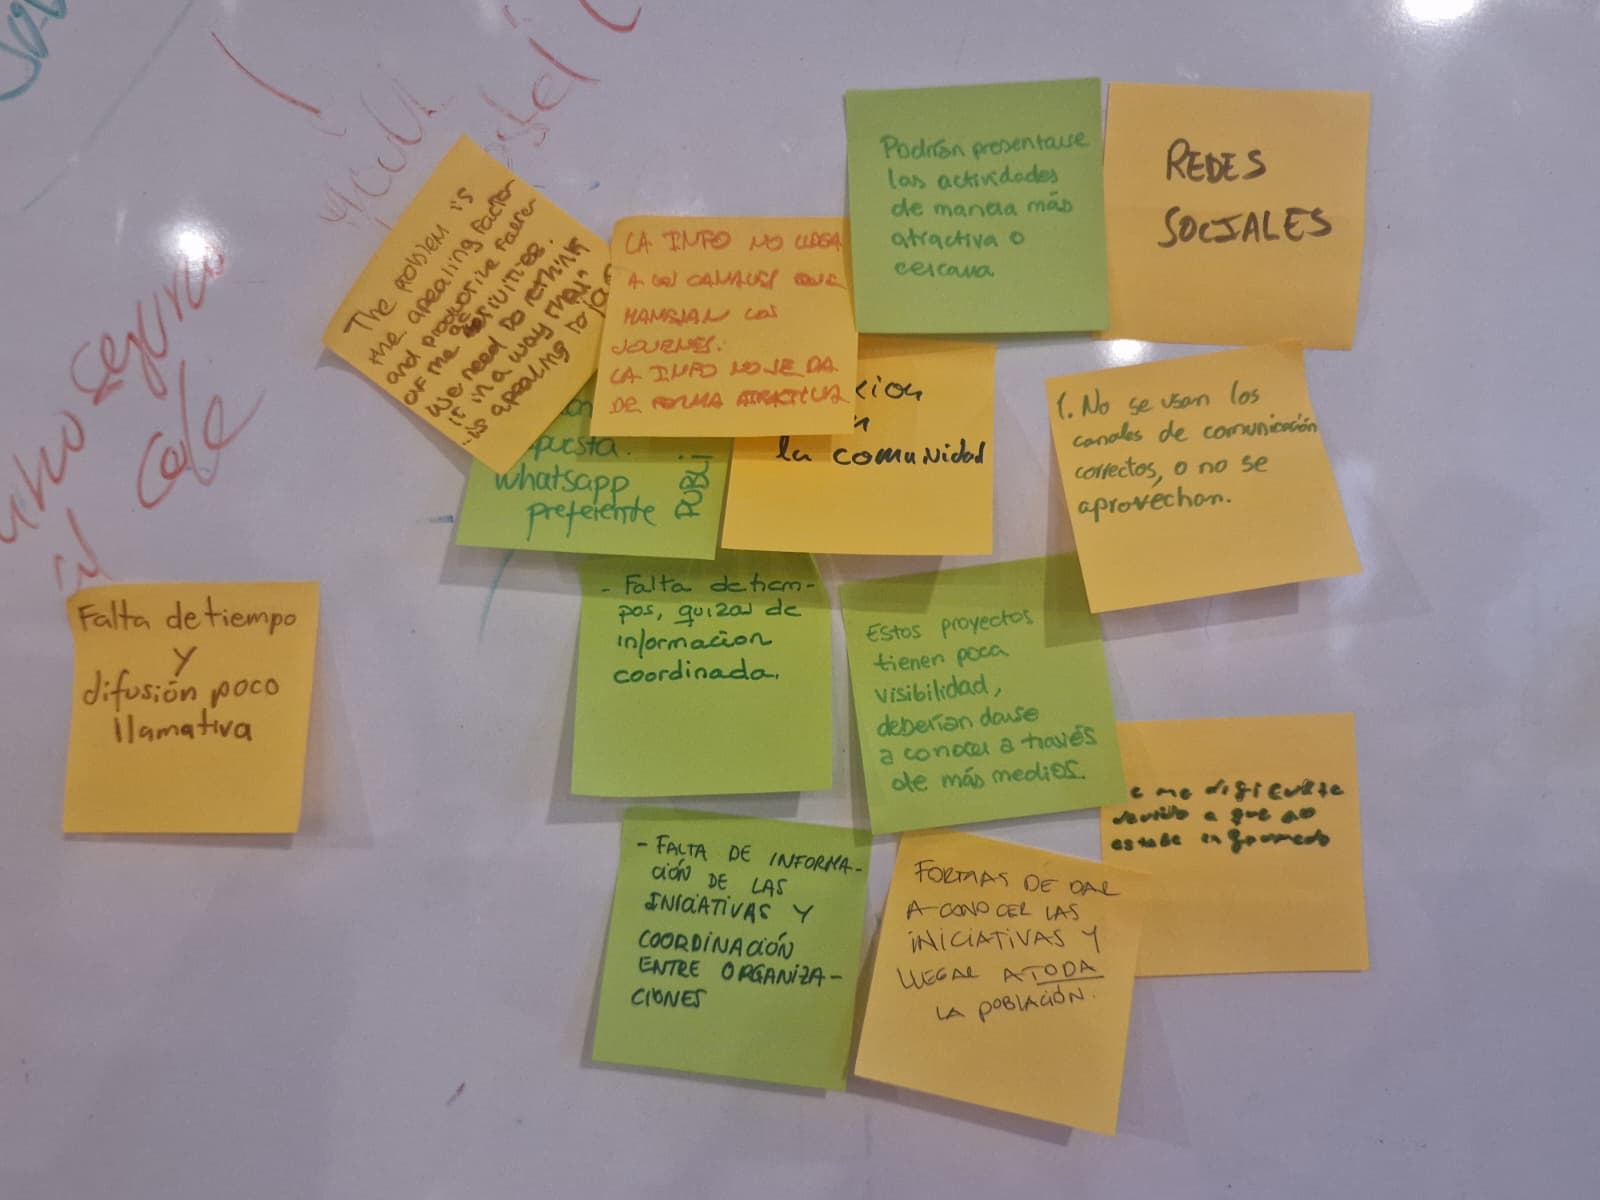 The problem is
the apealing factor
and productive
of the activities.
We need to rethink
it in a way that
is apealing to
LA INFO NO LLEGA
A LOS CANALES QUE
MANEJAN LOS
JOVENES.
LA INFO NO SE DA
DE FORMA ATRACTIVA
Podrían presentarse
las actividades
de manera más
atractiva o
cercana
REDES
SOCIALES
puesta.
whatsapp
preferente
PUBLI
xion
la comunidad
1. No se usan los
canales de comunicación
correctos, o no se
aprovechan.
Falta de tiempo
y
difusión poco
llamativa
- Falta de tiem-
pos, quizas de
informacion
coordinada.
Estos proyectos
tienen poca
visibilidad,
deberían darse
a conocer a través
de más medios.
e me dificulta
devido a que no
estube informado
- FALTA DE INFORMA-
CIÓN DE LAS
INICIATIVAS Y
COORDINACIÓN
ENTRE ORGANIZA-
CIONES
FORMAS DE DAR
A CONOCER LAS
INICIATIVAS Y
LLEGAR A TODA
LA POBLACIÓN.
seguras
cafe